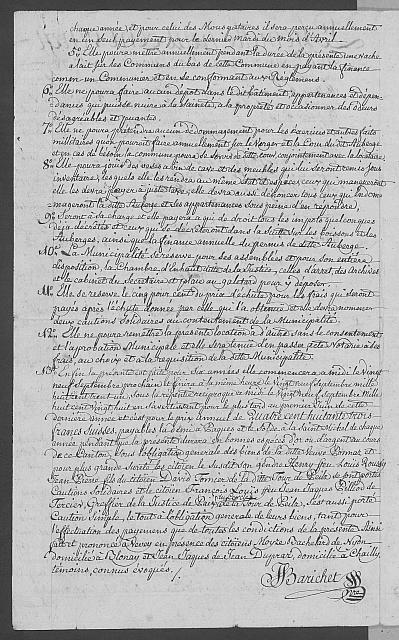 chaque année, et pour celui des Mousquetaires il sera perçu annuellement
en un seul payement pour le dernier mardi du mois d'Avril
5º Elle pourra mettre annuellement pendant la durée de la présente une vache
à lait sur les Communs du bas de cette Commune en payant la finance
comme un Communier et en se conformant aux Réglemens.
6º Elle ne poura faire aucun dépot dans le dit bâtiment appartenances et dépen-
dances qui puisse nuire à la sureté, à la propreté et occasionner des odeurs
désagréables et puantes.
7º Elle ne poura prétendre aucun dédommagement pour les exercices et autres faits
militaires qu'on pouroit faire annuellement sur le Verger et la Cour du dit Auberge
et en cas de besoin la commune poura se servir de cette cour conjointement avec la locataire
8º Elle poura jouir des vases à vin de cave et des meubles qui lui seront remis sous
inventaire, lesquels elle les rendra au même état et espèce, ceux qui manqueront
elle les devra payer à juste taxe, elle devra aussi dénoncer tous ceux qui endom-
mageront la dite Auberge et les appartenances sous peine d'en répondre.
9º Seront à sa charge et elle payera à qui de droit tous les impots quelconques
déja décrétés et ceux qui se décréteront dans la suite sur les boissons et les
Auberges, ainsi que la finance annuelle du permis de dite Auberge
10º La Municipalité se réserve pour ses assemblées et pour son entière
disposition, la Chambre d'en haut dite de la Justice, celles d'arret des Archives
et le cabinet du Secrétaire et place au galetas pour y déposer.
11º Elle se réserve le cinq pour cent du prix d'échute pour les frais qui seront
payés après l'échute donnée par celle qui l'a obtenue et elle devra nommer
deux cautions Solidaires au contentement de la Municipalité.
12º Elle ne poura remettre la présente location à d'autre sans le consentement
et l'aprobation Municipale et elle sera tenue d'en passer acte Notarié à ses
frais, au choix et à la requisition de la dite Municipalité.
13º Enfin la présente est faite pour Six années elle commencera à midi le Vingt
neuf Septembre prochain et finira à la même heure le Vingt neuf Septembre mille
huit cent trent un, Sous la repentie réciproque à midi le Vingt neuf Septembre Mille
huit cent Vingt huit en s'avertissant pour le plus tard au premier Juin de cette
dernière année et c'est pour le prix annuel de Quatre cent huitante trois
francs Suisses, payables la demi à Paques et le Solde à la Saint Michel de chaque
année pendant que la présente durera en bonnes espèces d'or ou d'argent au cours
de ce Canton, Sous l'obligation generale des biens de la dite Veuve Bonnar et
pour plus grande sureté les citoyen le Susdit son gendre Henry feu Louis Roussy
Jean Pierre fils du citoyen David Comcer de la dite Tour de Peilz se sont portés
Cautions Solidaires et le citoyen François Louis feu Jean Jaques Pilliod de
Greffier de la Justice de Paix de la Tour de Peilz, s'est aussi porté
Caution Simple, le tout à l'obligation generale de leurs biens, tant pour
l'effectuation des payemens que de toutes les conditions de la présente Ainsi
fait et prononcé à Vevey en présence des citoyens Moyse Bachelard de Nion
domicilié à Blonay et Jean Jaques de Jean Duprax, domicilié à Chailly
témoins, connus évoqués. /.
Barichet